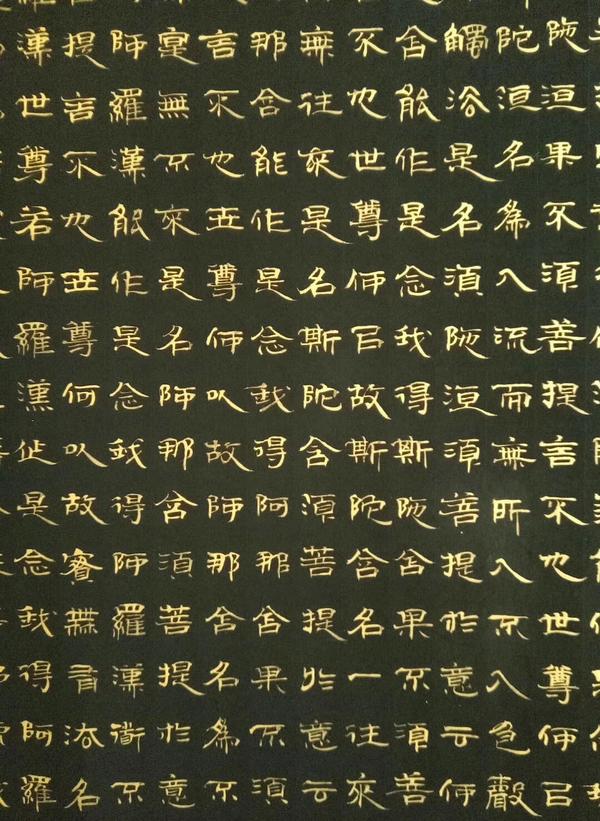 陁洹果不須菩提言不也世尊何以
陀洹名為入流而無所入不入色聲
觸法是名須陁洹須菩提於意云何
含能作是念我得斯陁含果不須菩
不也世尊何以故斯陀含名一往來
無往來是名斯陀含須菩提於意云
那含能作是念我得阿那含果不須
言不也世尊何以故阿那含名為不
寔無不來是名阿那含須菩提於意
阿羅漢能作是念我得阿羅漢道不
提言不也世尊何以故實無有法名
漢世尊若阿羅漢作是念我得阿羅